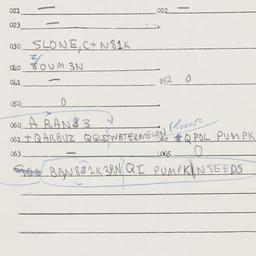 021 — 022 —
023 —
030 SLONE, C+N81K
040 80UM 3N
041 — 042 0
050 0
060 A BAN83
061 +QARBUZ QGLE WATERMELON 062 +QPOL PUMPK
063 — 065 0
BAN881K3AN QI PUMPKINSEEDS